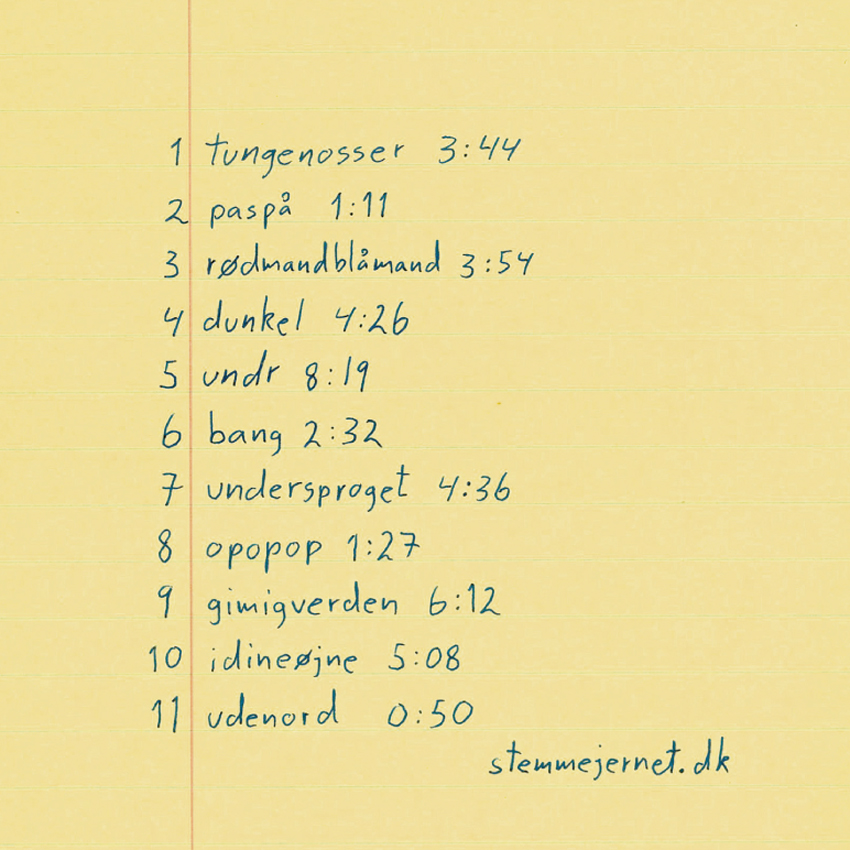 1 tungenosser 3:44
2 paspå 1:11
3 rødmandblåmand 3:54
4 dunkel 4:26
5 undr 8:19
6 bang 2:32
7 undersproget 4:36
8 opopop 1:27
9 gimigverden 6:12
10 idineøjne 5:08
11 udenord 0:50
stemmejernet.dk